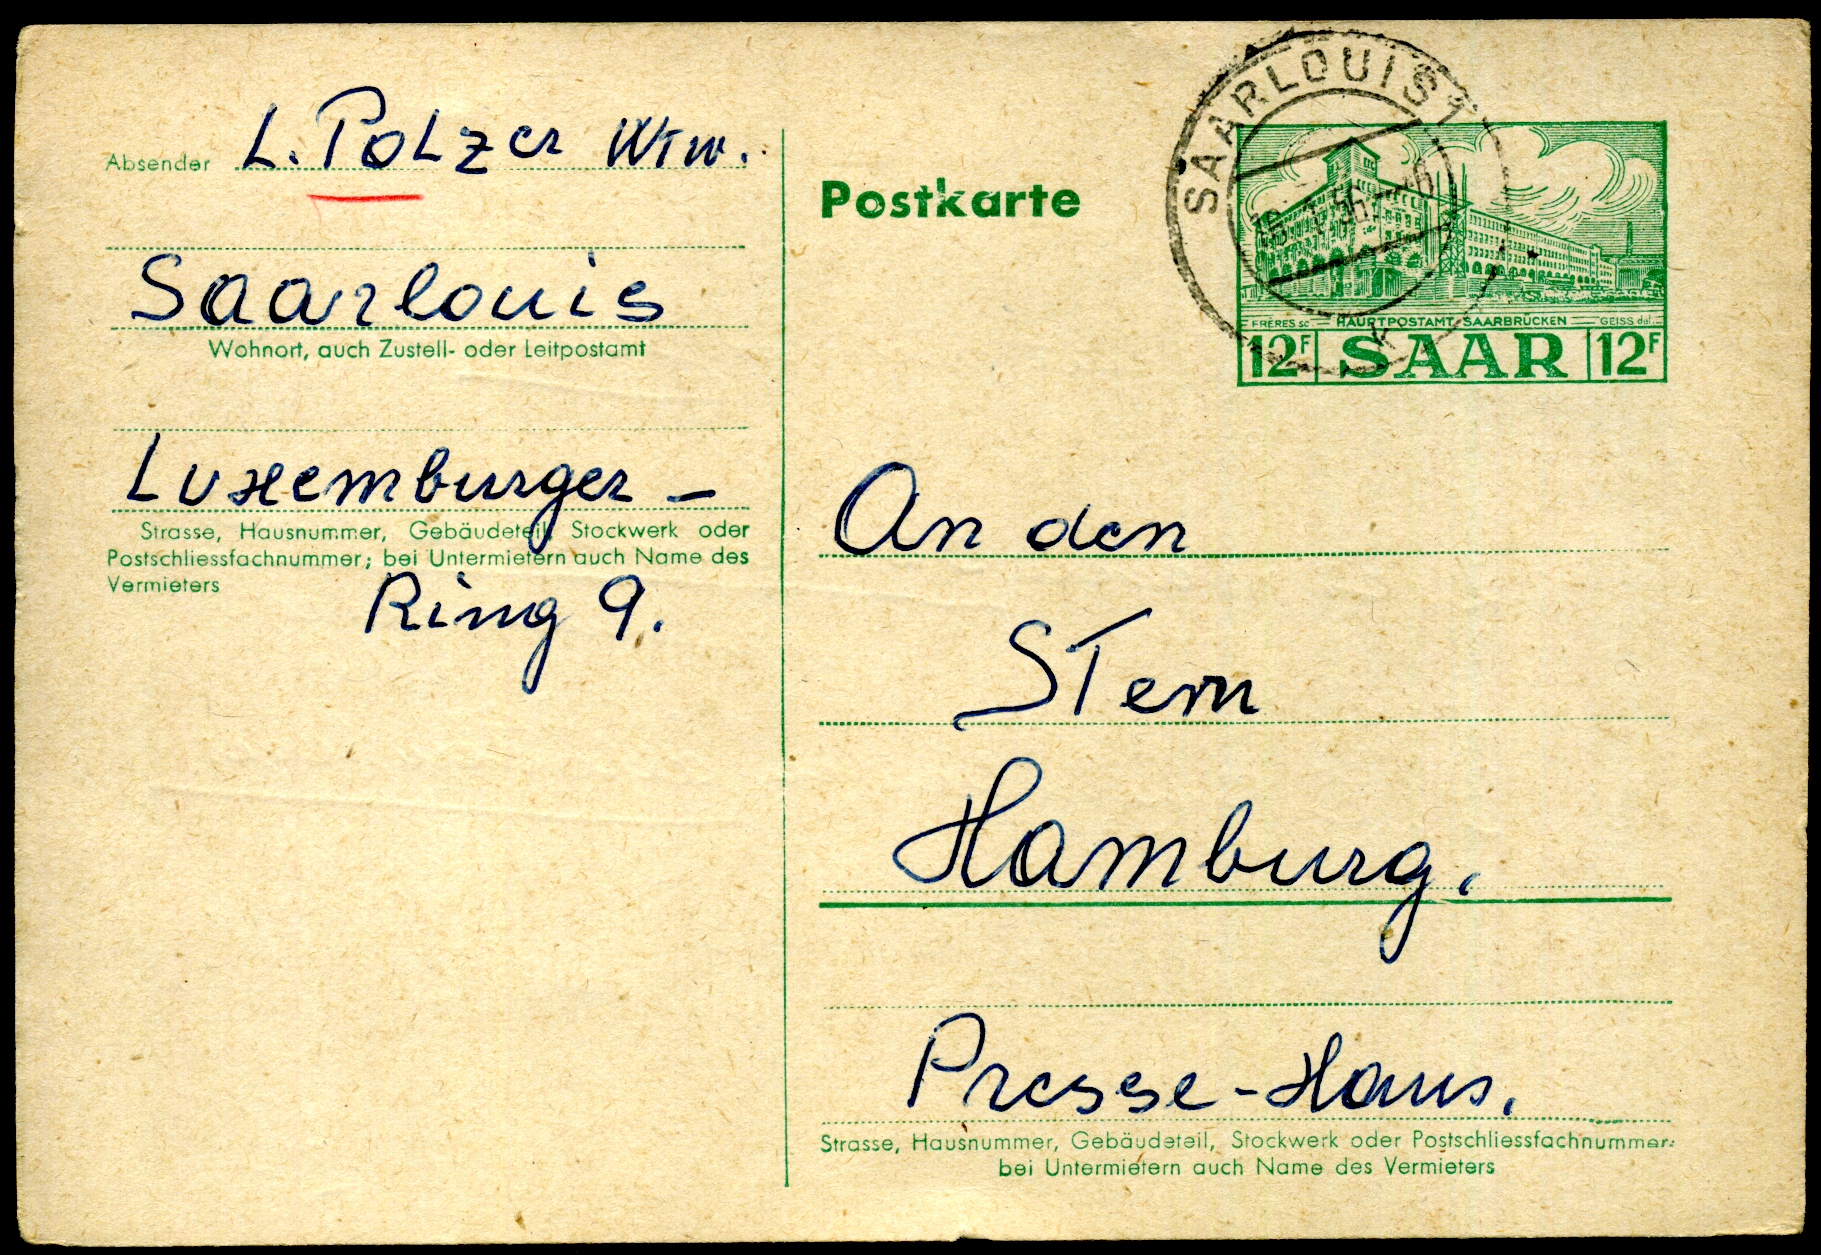 Absender L. Polzer Wtw.
Saarlouis
Wohnort, auch Zustell- oder Leitpostamt
Luxemburger –
Strasse, Hausnummer, Gebäudeteil, Stockwerk oder
Postschliessfachnummer; bei Untermietern auch Name des
Vermieters
Ring 9.
Postkarte
SAARLOUIS 1
56
FRÈRES sc. HAUPTPOSTAMT SAARBRÜCKEN GEISS del.
12F SAAR 12F
An den
Stern
Hamburg.
Presse-Haus.
Strasse, Hausnummer, Gebäudeteil, Stockwerk oder Postschliessfachnummer:
bei Untermietern auch Name des Vermieters